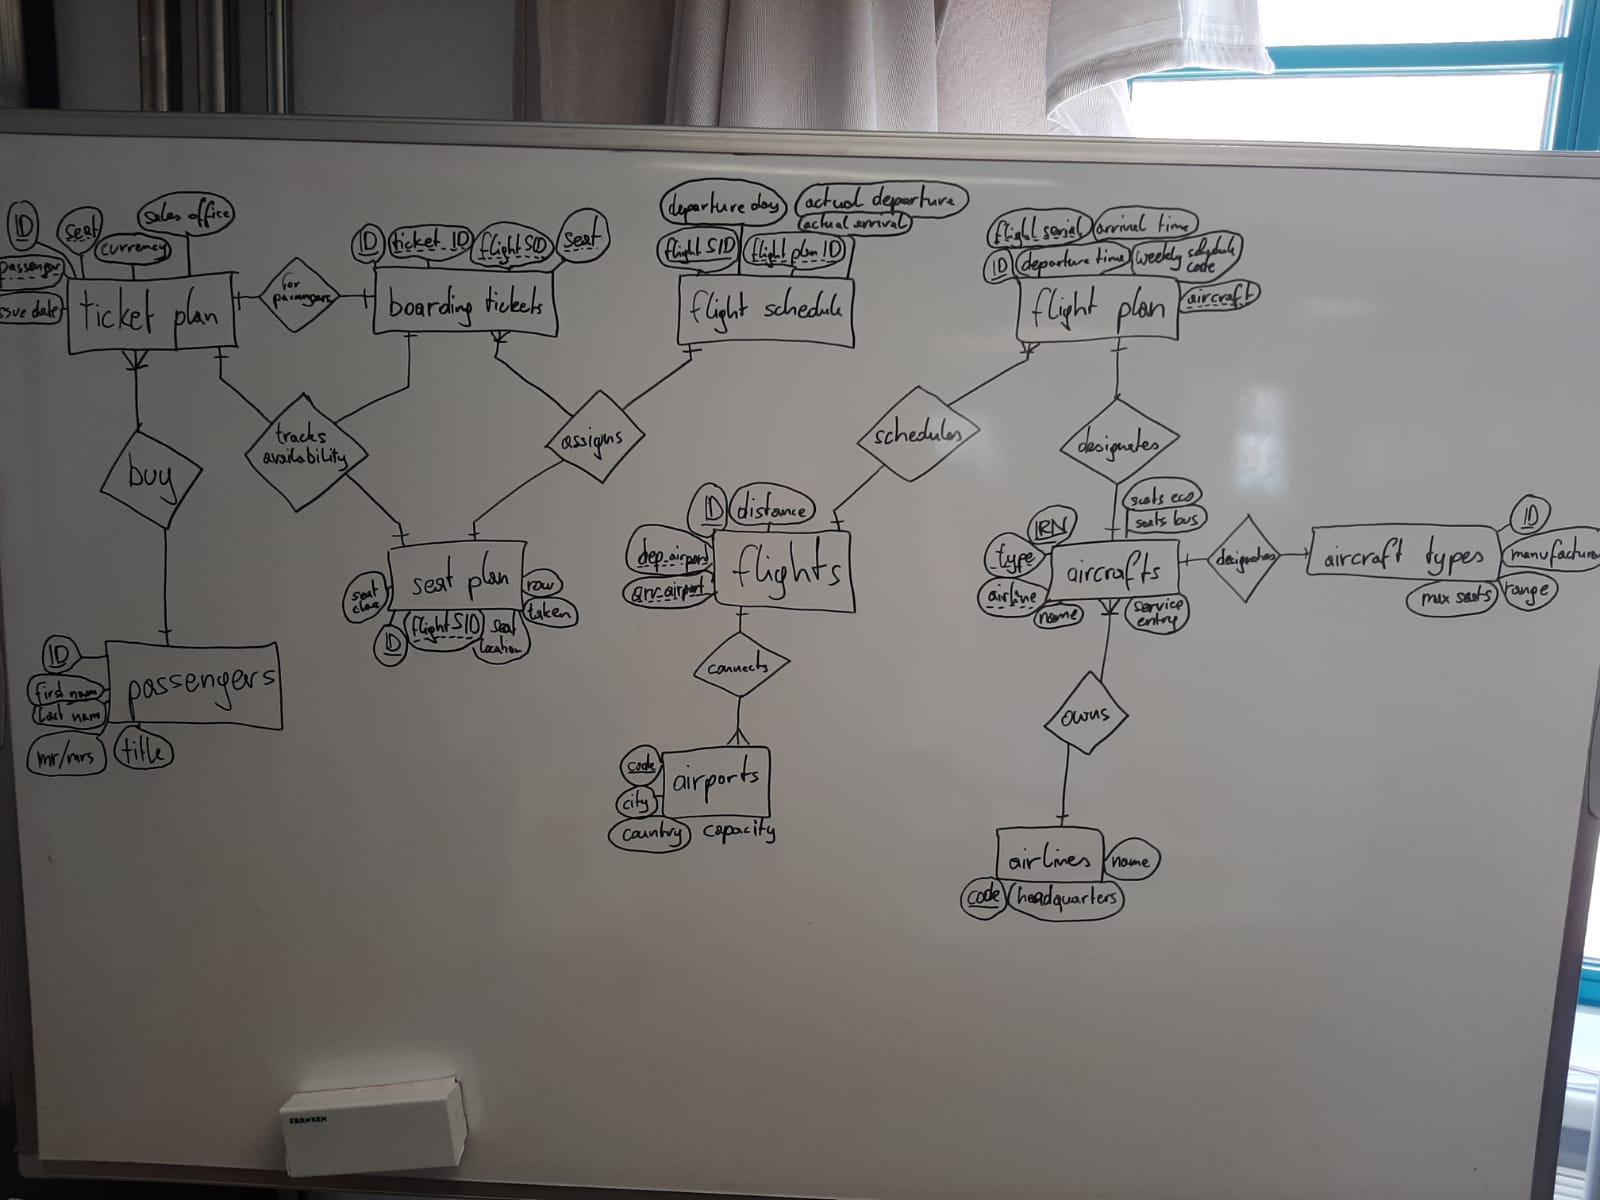 ID
seat
sales office
currency
passenger
issue date
ticket plan
for
passengers
ID
ticket_ID
flight SID
seat
boarding tickets
departure day
actual departure
actual arrival
flight SID
flight plan ID
flight schedule
flight serial
arrival time
ID
departure time
weekly schedule
code
aircraft
flight plan
buy
tracks
availability
assigns
schedules
designates
seat
seat plan
row
taken
ID
flight SID
seat
location
ID
distance
dep_airport
arr_airport
flights
IRN
seats eco
seats bus
type
airline
name
aircrafts
service
entry
designates
aircraft types
ID
manufacture
max seats
range
ID
first name
last name
mr/mrs
title
passengers
connects
owns
code
city
country
capacity
airports
airlines
name
code
headquarters
FRANKEN